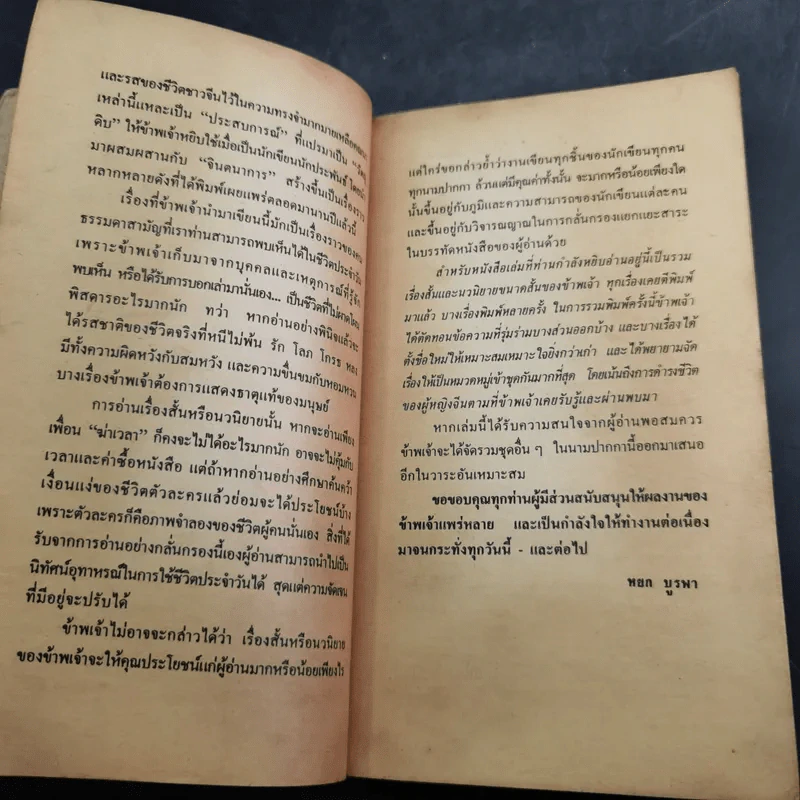 และรสของชีวิตชาวจีนไว้ในความทรงจำมากมายเหลือ
เหล่านี้แหละเป็น “ประสบการณ์” ที่แปรมาเป็น
ดิบ” ให้ข้าพเจ้าหยิบใช้เมื่อเป็นนักเขียนนักประพันธ์
มาผสมผสานกับ “จินตนาการ” สร้างขึ้นเป็นเรื่องราว
หลากหลายดังที่ได้พิมพ์เผยแพร่ตลอดมานานปีแล้วนี้
เรื่องที่ข้าพเจ้านำมาเขียนนี้มักเป็นเรื่องราวของคน
ธรรมดาสามัญที่เราท่านสามารถพบเห็นได้ในชีวิตประจำวัน
เพราะข้าพเจ้าเก็บมาจากบุคคลและเหตุการณ์ที่รู้จัก
พบเห็น หรือได้รับการบอกเล่ามานั่นเอง... เป็นชีวิตที่ไม่
พิสดารอะไรมากนัก ทว่า หากอ่านอย่างพินิจแล้วจะ
ได้รสชาติของชีวิตจริงที่หนีไม่พ้น รัก โลภ โกรธ หลง
มีทั้งความผิดหวังกับสมหวัง และความขื่นขมกับหอมหวาน
บางเรื่องข้าพเจ้าต้องการแสดงธาตุแท้ของมนุษย์
การอ่านเรื่องสั้นหรือนวนิยายนั้น หากจะอ่านเพียง
เพื่อน “ฆ่าเวลา” ก็คงจะไม่ได้อะไรมากนัก อาจจะไม่คุ้มกับ
เวลาและค่าซื้อหนังสือ แต่ถ้าหากอ่านอย่างศึกษาค้นคว้า
เงื่อนแง่ของชีวิตตัวละครแล้วย่อมจะได้ประโยชน์บ้าง
เพราะตัวละครก็คือภาพจำลองของชีวิตผู้คนนั่นเอง สิ่งที่ได้
รับจากการอ่านอย่างกลั่นกรองนี้เองผู้อ่านสามารถนำไปเป็น
นิทัศน์อุทาหรณ์ในการใช้ชีวิตประจำวันได้ สุดแต่ความจัดเจน
ที่มีอยู่จะปรับได้
ข้าพเจ้าไม่อาจจะกล่าวได้ว่า เรื่องสั้นหรือนวนิยาย
ของข้าพเจ้าจะให้คุณประโยชน์แก่ผู้อ่านมากหรือน้อยเพียงไร
แต่ใคร่ขอกล่าวย้ำว่างานเขียนทุกชิ้นของนักเขียนทุกคน
ทุกนามปากกา ล้วนแต่มีคุณค่าทั้งนั้น จะมากหรือน้อยเพียงใด
นั้นขึ้นอยู่กับภูมิและความสามารถของนักเขียนแต่ละคน
และขึ้นอยู่กับวิจารณญาณในการกลั่นกรองแยกแยะสาระ
ในบรรทัดหนังสือของผู้อ่านด้วย
สำหรับหนังสือเล่มที่ท่านกำลังหยิบอ่านอยู่นี้เป็นรวม
เรื่องสั้นและนวนิยายขนาดสั้นของข้าพเจ้า ทุกเรื่องเคยตีพิมพ์
มาแล้ว บางเรื่องพิมพ์หลายครั้ง ในการรวมพิมพ์ครั้งนี้ข้าพเจ้า
ได้ตัดทอนข้อความที่รุ่มร่ามบางส่วนออกบ้าง และบางเรื่องได้
ตั้งชื่อใหม่ให้เหมาะสมเหมาะใจยิ่งกว่าเก่า และได้พยายามจัด
เรื่องให้เป็นหมวดหมู่เข้าชุดกันมากที่สุด โดยเน้นถึงการดำรงชีวิต
ของผู้หญิงจีนตามที่ข้าพเจ้าเคยรับรู้และผ่านพบมา
หากเล่มนี้ได้รับความสนใจจากผู้อ่านพอสมควร
ข้าพเจ้าจะได้จัดรวมชุดอื่น ๆ ในนามปากกานี้ออกมาเสนอ
อีกในวาระอันเหมาะสม
ขอขอบคุณทุกท่านผู้มีส่วนสนับสนุนให้ผลงานของ
ข้าพเจ้าแพร่หลาย และเป็นกำลังใจให้ทำงานต่อเนื่อง
มาจนกระทั่งทุกวันนี้ - และต่อไป
หยก บูรพา